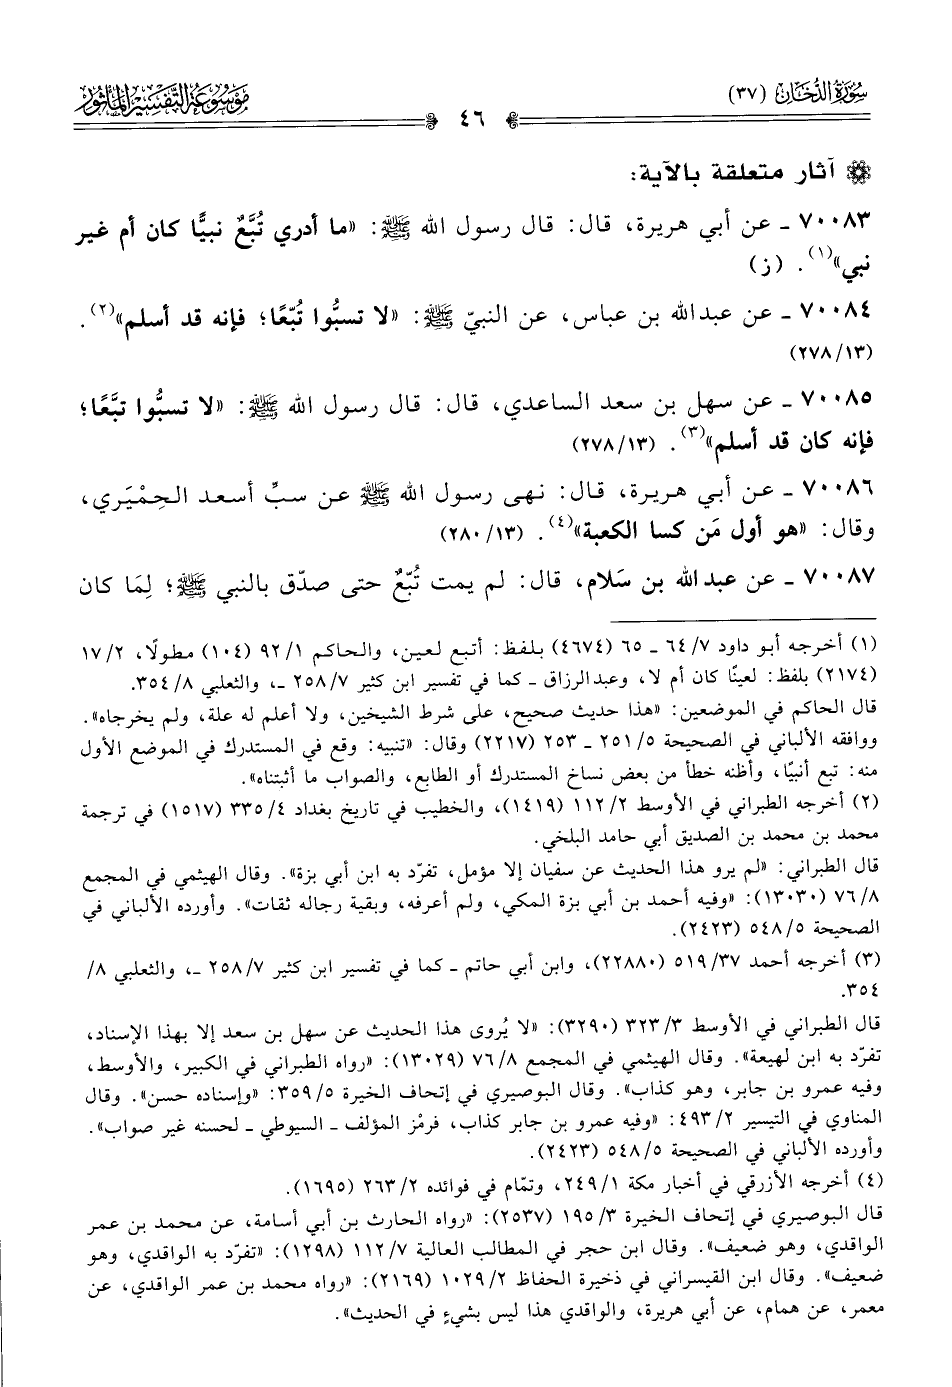 سُورَةُ الدُّخَان (٣٧)
٤٦
مَوْسُوعَةُ التَّفْسِيرِ المَأْثُور
آثار متعلقة بالآية:
٧٠٠٨٣ ـ عن أبي هريرة، قال: قال رسول الله ﷺ: «ما أدري تُبَّعٌ نبيًّا كان أم غير
نبي»(١). (ز)
٧٠٠٨٤ ـ عن عبدالله بن عباس، عن النبيّ ﷺ: «لا تسبُّوا تُبّعًا؛ فإنه قد أسلم»(٢).
(٢٧٨/١٣)
٧٠٠٨٥ ـ عن سهل بن سعد الساعدي، قال: قال رسول الله ﷺ: «لا تسبُّوا تبَّعًا؛
فإنه كان قد أسلم»(٣). (٢٧٨/١٣)
٧٠٠٨٦ ـ عن أبي هريرة، قال: نهى رسول الله ﷺ عن سبِّ أسعد الحِمْيَري،
وقال: «هو أول مَن كسا الكعبة»(٤). (٢٨٠/١٣)
٧٠٠٨٧ ـ عن عبد الله بن سَلَام، قال: لم يمت تُبّعٌ حتى صدّق بالنبي ﷺ؛ لِمَا كان
(١) أخرجه أبو داود ٧/ ٦٤ ـ ٦٥ (٤٦٧٤) بلفظ: أتبع لعين، والحاكم ١/ ٩٢ (١٠٤) مطولًا، ٢/ ١٧
(٢١٧٤) بلفظ: لعينًا كان أم لا، وعبدالرزاق ـ كما في تفسير ابن كثير ٧/ ٢٥٨ ـ، والثعلبي ٨/ ٣٥٤.
قال الحاكم في الموضعين: «هذا حديث صحيح، على شرط الشيخين، ولا أعلم له علة، ولم يخرجاه».
ووافقه الألباني في الصحيحة ٥/ ٢٥١ ـ ٢٥٣ (٢٢١٧) وقال: «تنبيه: وقع في المستدرك في الموضع الأول
منه: تبع أنبيًا، وأظنه خطأ من بعض نساخ المستدرك أو الطابع، والصواب ما أثبتناه».
(٢) أخرجه الطبراني في الأوسط ٢/ ١١٢ (١٤١٩)، والخطيب في تاريخ بغداد ٤/ ٣٣٥ (١٥١٧) في ترجمة
محمد بن محمد بن الصديق أبي حامد البلخي.
قال الطبراني: «لم يرو هذا الحديث عن سفيان إلا مؤمل، تفرّد به ابن أبي بزة». وقال الهيثمي في المجمع
٨/ ٧٦ (١٣٠٣٠): «وفيه أحمد بن أبي بزة المكي، ولم أعرفه، وبقية رجاله ثقات». وأورده الألباني في
الصحيحة ٥/ ٥٤٨ (٢٤٢٣).
(٣) أخرجه أحمد ٣٧/ ٥١٩ (٢٢٨٨٠)، وابن أبي حاتم ـ كما في تفسير ابن كثير ٧/ ٢٥٨ ـ، والثعلبي ٨/
٣٥٤.
قال الطبراني في الأوسط ٣/ ٣٢٣ (٣٢٩٠): «لا يُروى هذا الحديث عن سهل بن سعد إلا بهذا الإسناد،
تفرّد به ابن لهيعة». وقال الهيثمي في المجمع ٨/ ٧٦ (١٣٠٢٩): «رواه الطبراني في الكبير، والأوسط،
وفيه عمرو بن جابر، وهو كذاب». وقال البوصيري في إتحاف الخيرة ٥/ ٣٥٩: «وإسناده حسن». وقال
المناوي في التيسير ٢/ ٤٩٣: «وفيه عمرو بن جابر كذاب، فرمْز المؤلف ـ السيوطي ـ لحسنه غير صواب».
وأورده الألباني في الصحيحة ٥/ ٥٤٨ (٢٤٢٣).
(٤) أخرجه الأزرقي في أخبار مكة ١/ ٢٤٩، وتمّام في فوائده ٢/ ٢٦٣ (١٦٩٥).
قال البوصيري في إتحاف الخيرة ٣/ ١٩٥ (٢٥٣٧): «رواه الحارث بن أبي أسامة، عن محمد بن عمر
الواقدي، وهو ضعيف». وقال ابن حجر في المطالب العالية ٧/ ١١٢ (١٢٩٨): «تفرّد به الواقدي، وهو
ضعيف». وقال ابن القيسراني في ذخيرة الحفاظ ٢/ ١٠٢٩ (٢١٦٩): «رواه محمد بن عمر الواقدي، عن
معمر، عن همام، عن أبي هريرة، والواقدي هذا ليس بشيءٍ في الحديث».